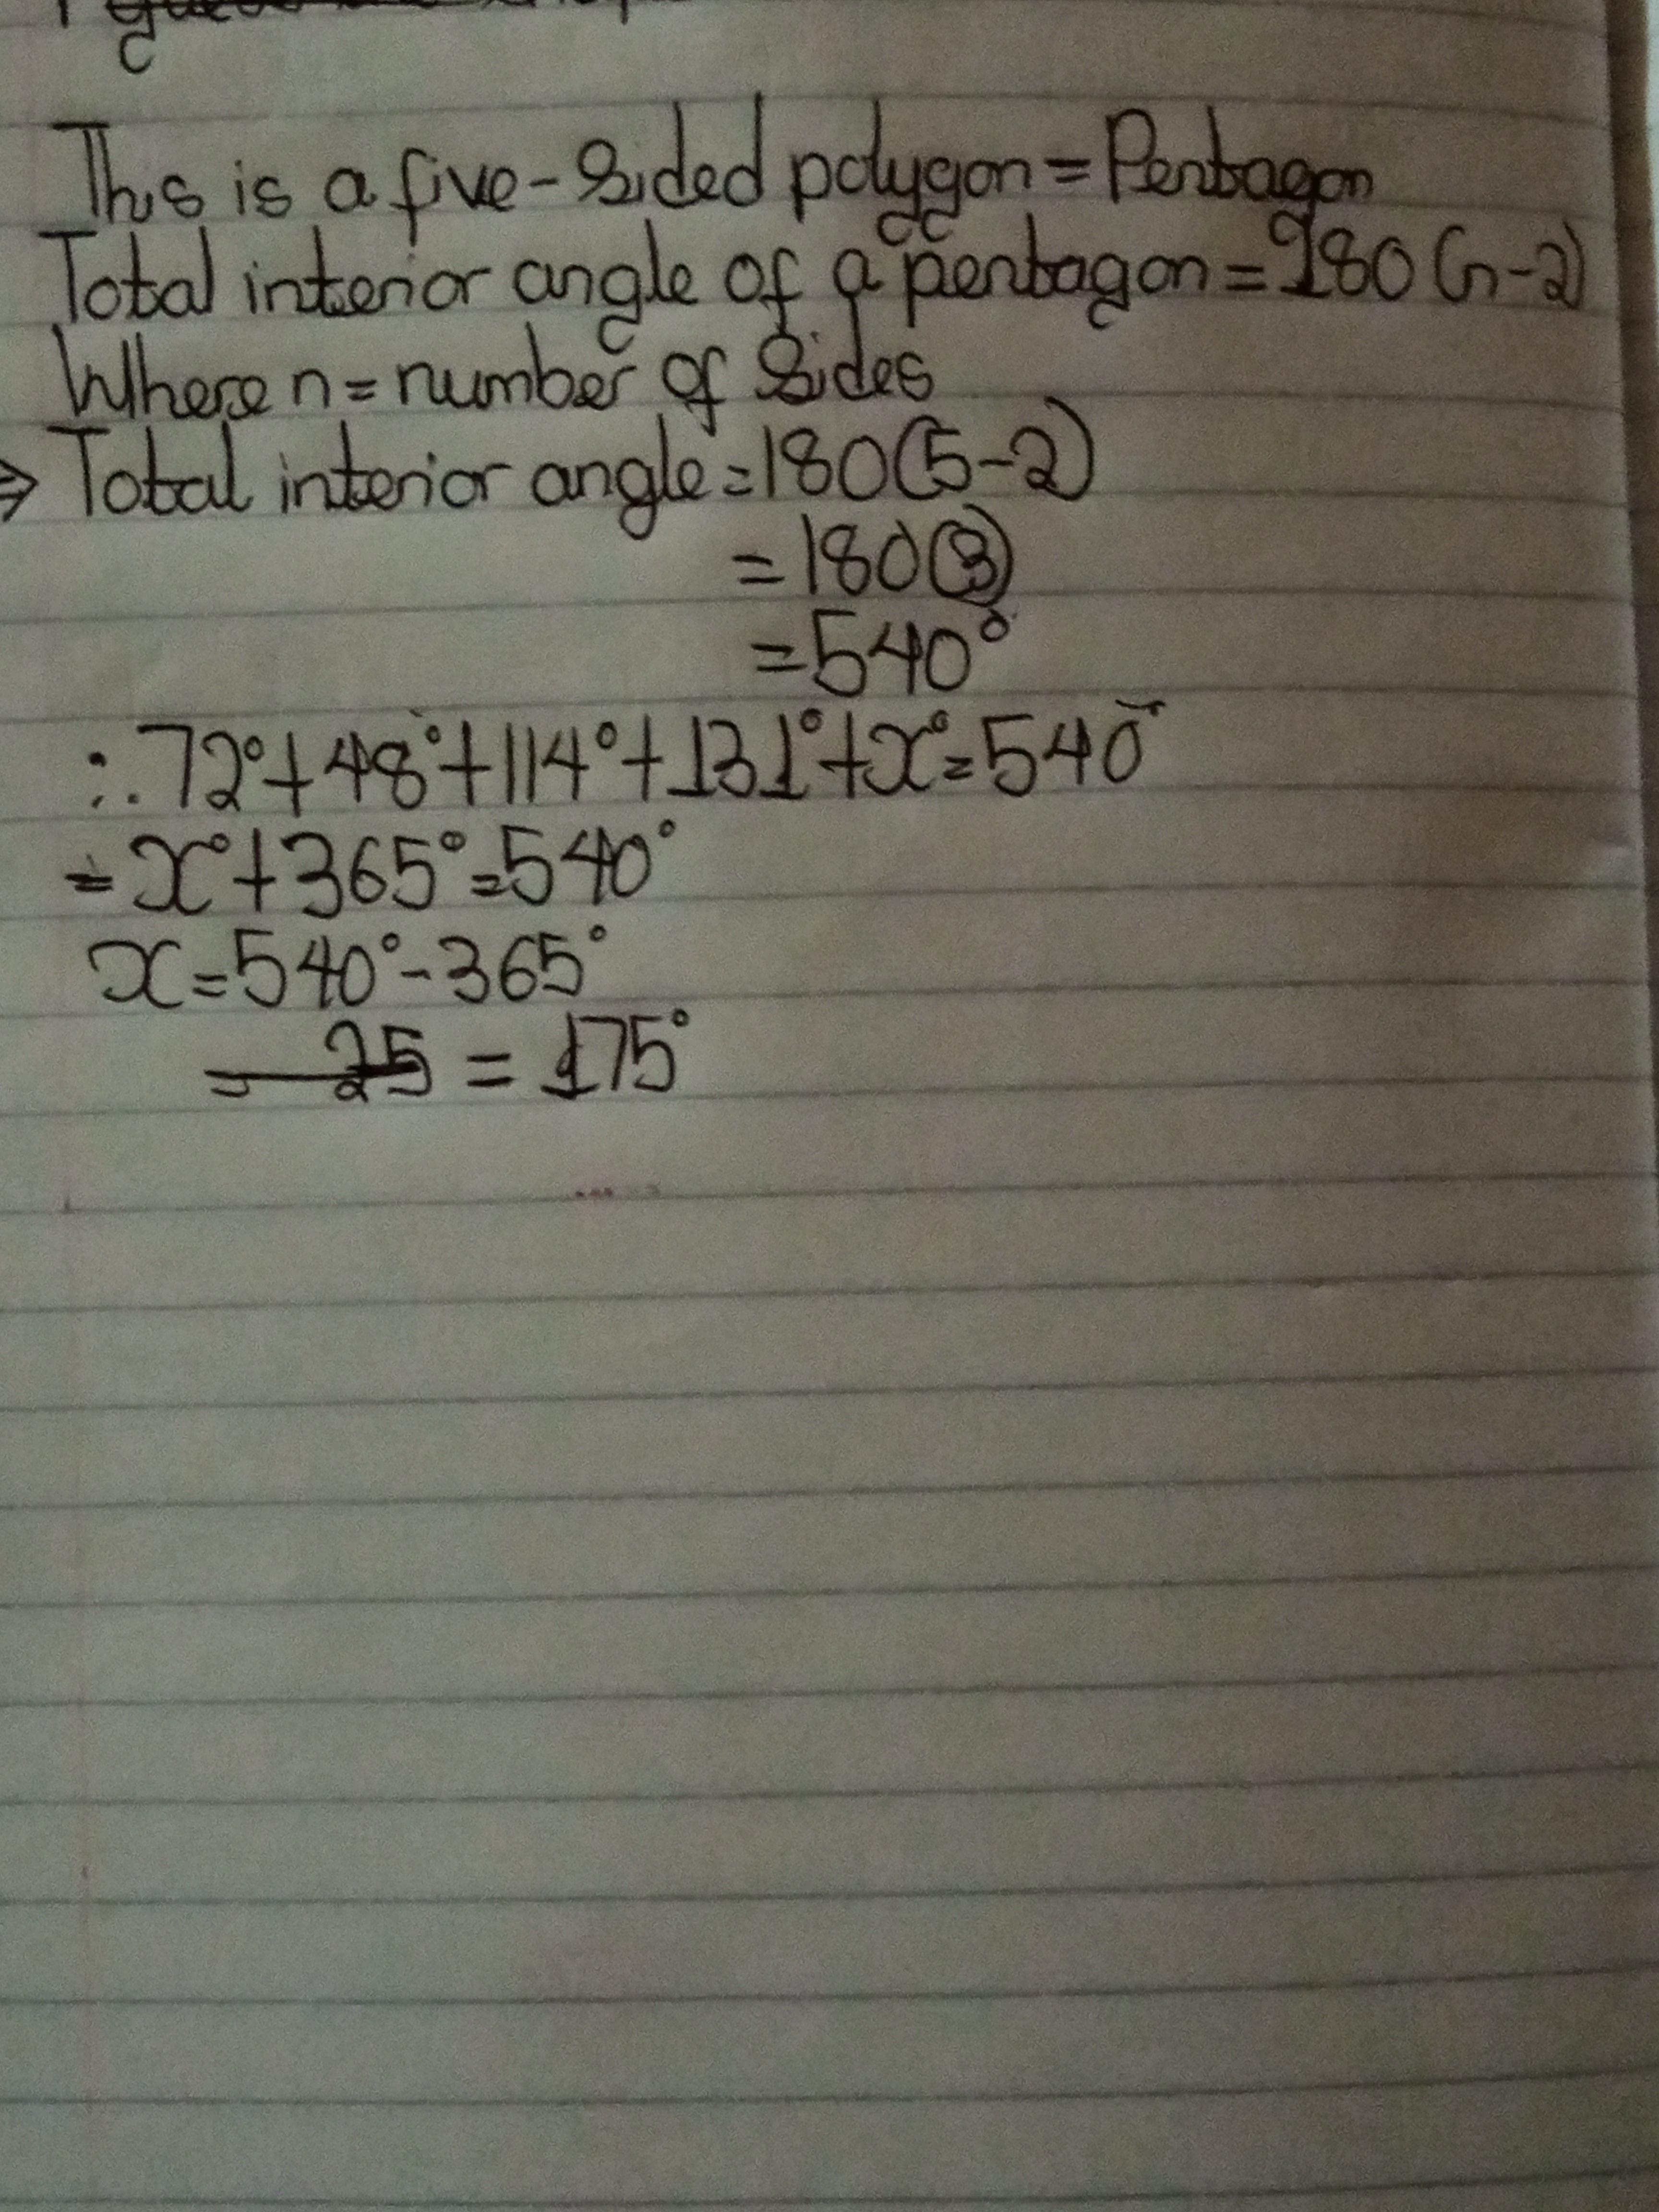 This is a five-sided polygon = Pentagon
Total interior angle of a pentagon = 180(n-2)
Where n = number of sides
⇒ Total interior angle = 180(5-2)
= 180(3)
= 540°
∴ 72° + 48° + 114° + 131° + x° = 540°
= x° + 365° = 540°
x = 540° - 365°
= 25 = 175°